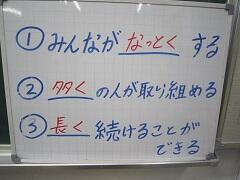 ① みんなが なっとく する
② 多く の人が取り組める
③ 長く 続けることが
できる